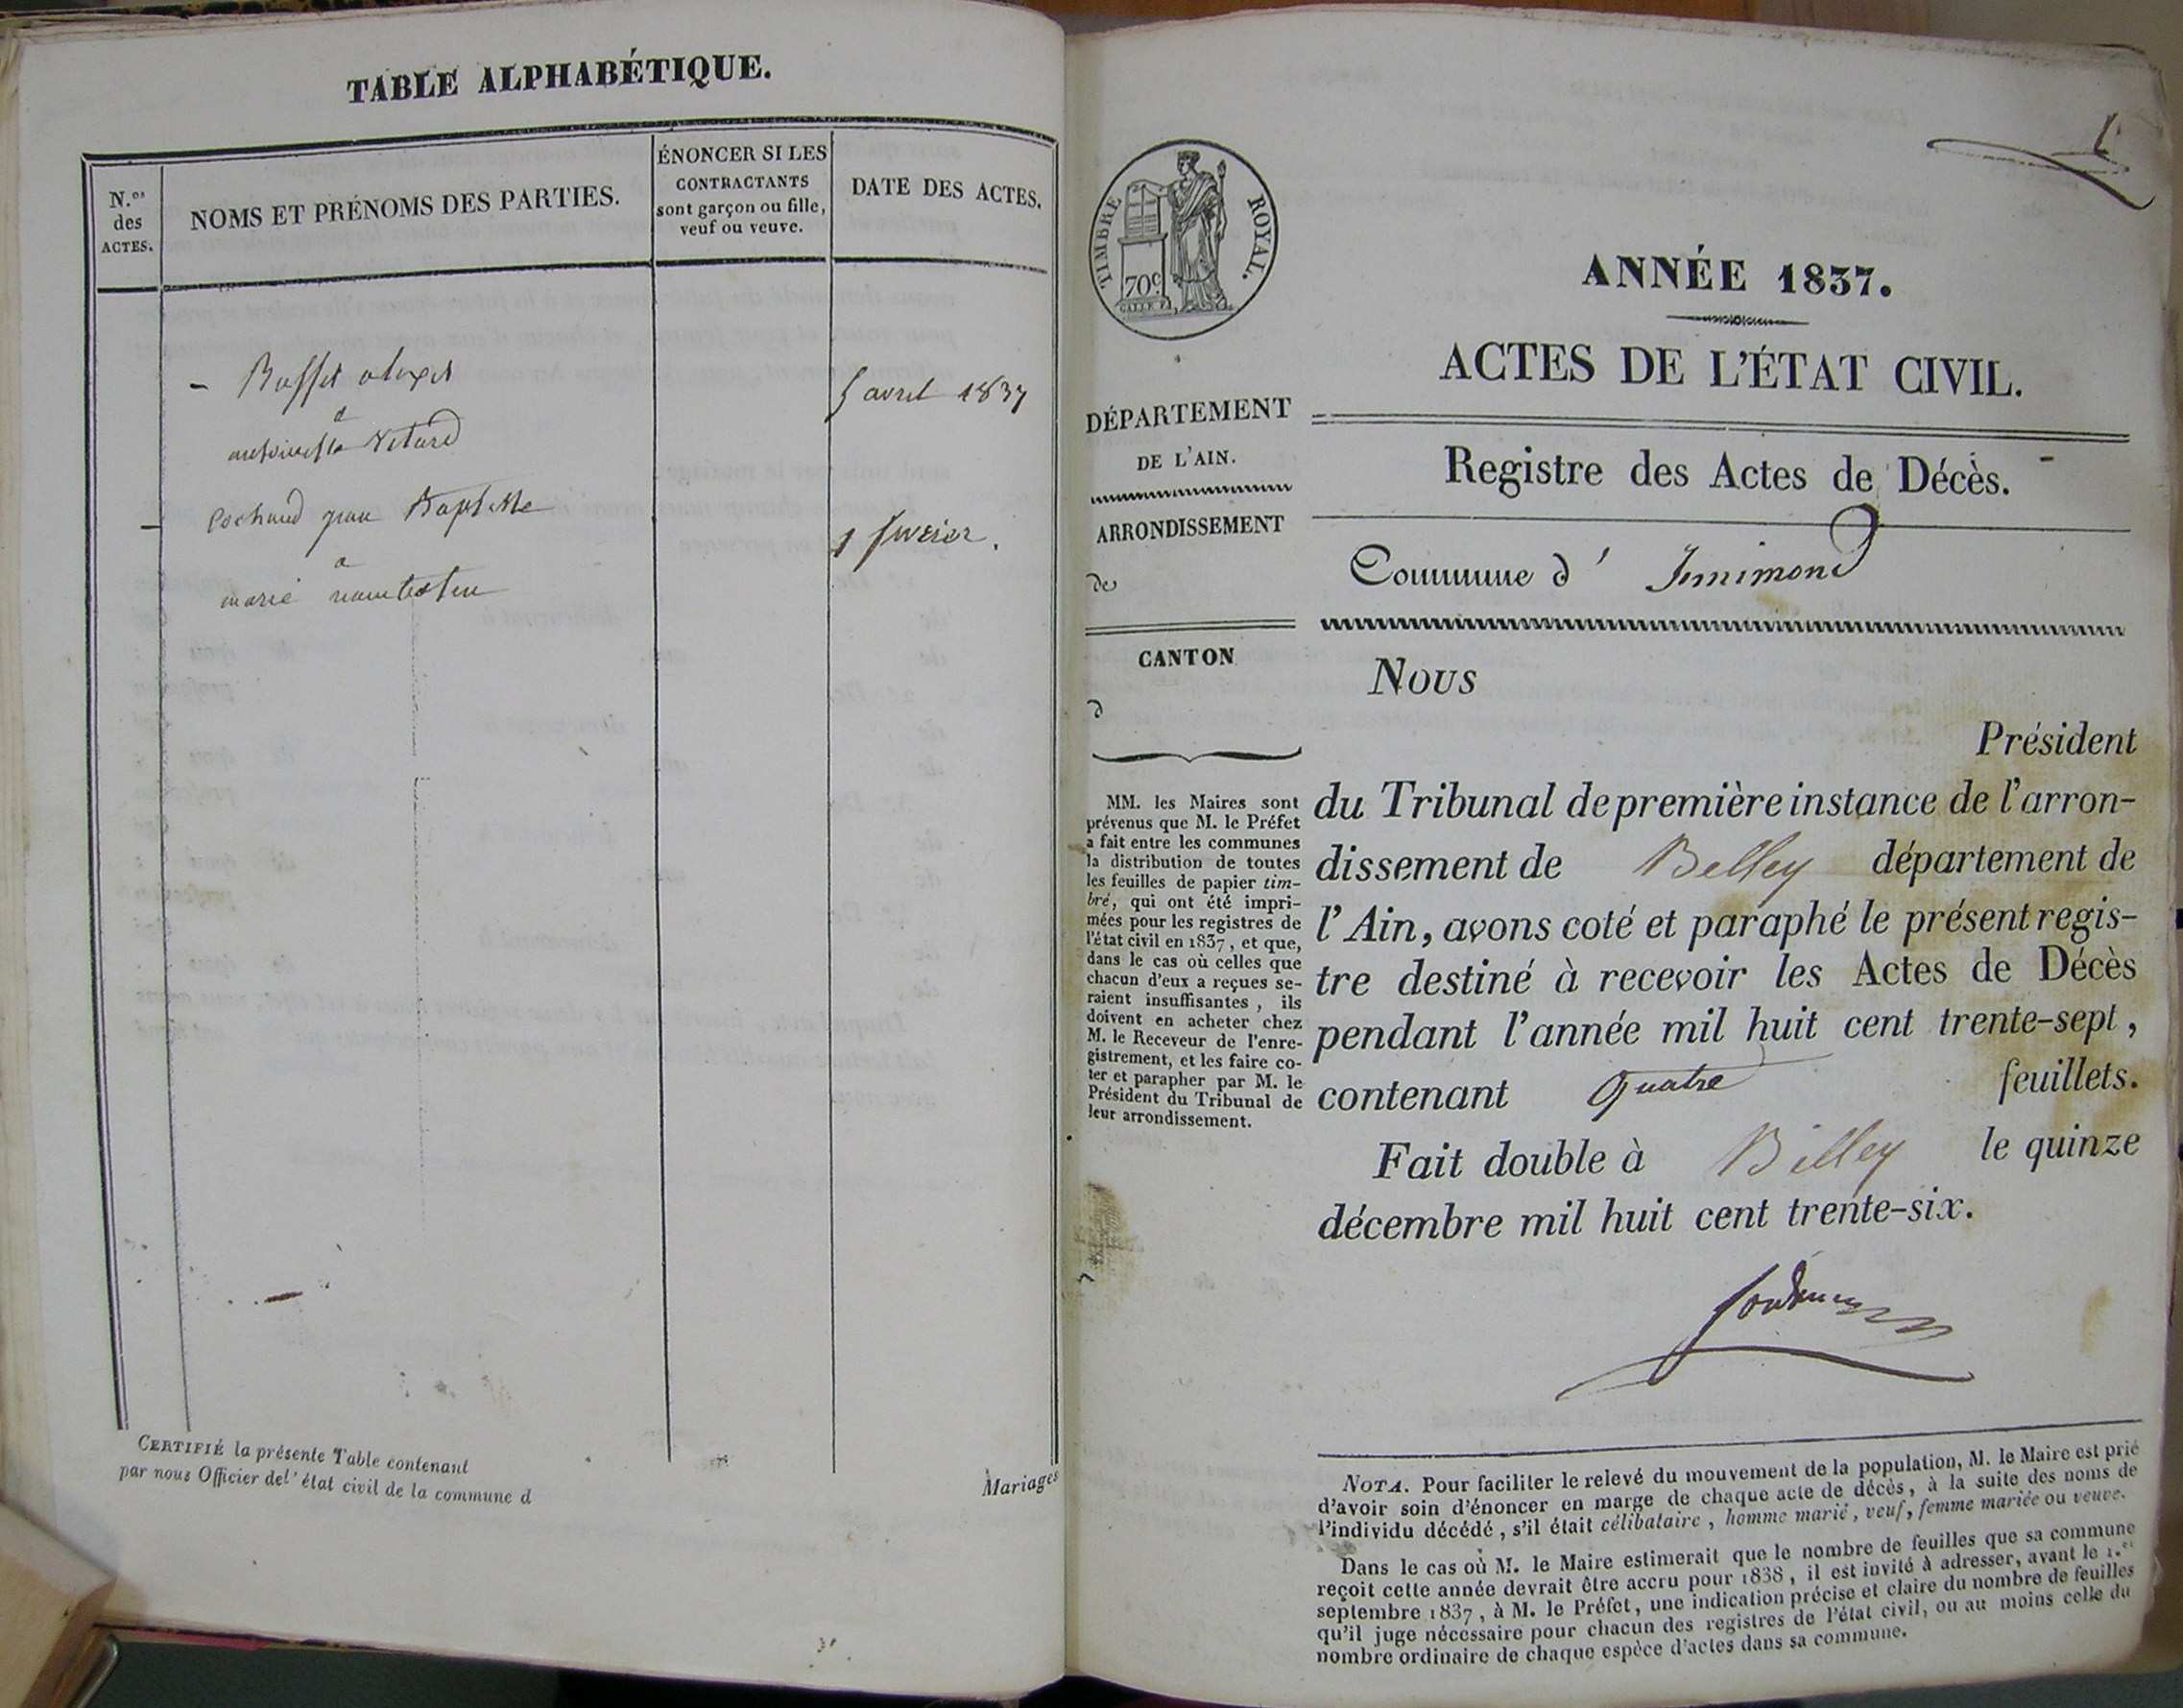 TABLE ALPHABÉTIQUE.
N.os
des
ACTES.
NOMS ET PRÉNOMS DES PARTIES.
ÉNONCER SI LES
CONTRACTANTS
sont garçon ou fille,
veuf ou veuve.
DATE DES ACTES.
5 avril 1837
à
antoinette
jean Baptiste
1 fevrier.
a
marie
CERTIFIÉ la présente Table contenant
Mariages
par nous Officier de l'état civil de la commune d
TIMBRE ROYAL.
70c
1
DÉPARTEMENT
DE L'AIN.
ARRONDISSEMENT
de
CANTON
d
MM. les Maires sont
prévenus que M. le Préfet
a fait entre les communes
la distribution de toutes
les feuilles de papier tim-
bré, qui ont été impri-
mées pour les registres de
l'état civil en 1837, et que,
dans le cas où celles que
chacun d'eux a reçues se-
raient insuffisantes, ils
doivent en acheter chez
M. le Receveur de l'enre-
gistrement, et les faire co-
ter et parapher par M. le
Président du Tribunal de
leur arrondissement.
ANNÉE 1837.
ACTES DE L'ÉTAT CIVIL.
Registre des Actes de Décès.
Commune d' Jnnimond
NOUS
Président
du Tribunal de première instance de l'arron-
dissement de Belley département de
l'Ain, avons coté et paraphé le présent regis-
tre destiné à recevoir les Actes de Décès
pendant l'année mil huit cent trente-sept,
contenant quatre feuillets.
Fait double à Belley le quinze
décembre mil huit cent trente-six.
NOTA. Pour faciliter le relevé du mouvement de la population, M. le Maire est prié
d'avoir soin d'énoncer en marge de chaque acte de décès, à la suite des noms de
l'individu décédé, s'il était célibataire, homme marié, veuf, femme mariée ou veuve.
Dans le cas où M. le Maire estimerait que le nombre de feuilles que sa commune
reçoit cette année devrait être accru pour 1838, il est invité à adresser, avant le 1.er
septembre 1837, à M. le Préfet, une indication précise et claire du nombre de feuilles
qu'il juge nécessaire pour chacun des registres de l'état civil, ou au moins celle du
nombre ordinaire de chaque espèce d'actes dans sa commune.